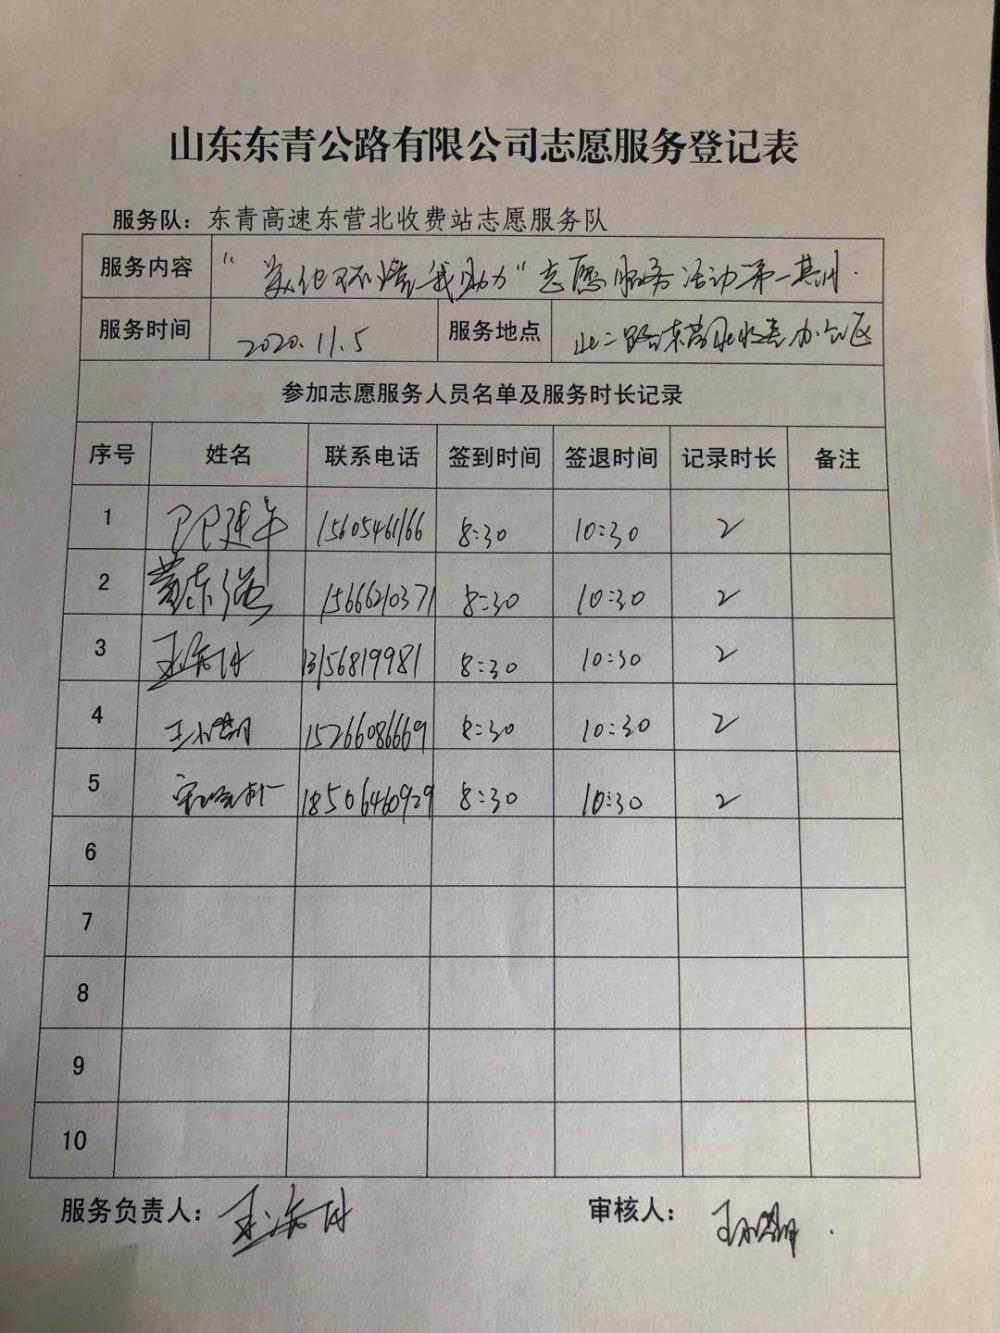 山东东青公路有限公司志愿服务登记表
服务队：东青高速东营北收费站志愿服务队
服务内容 “美化环境我助力”志愿服务活动第一期
服务时间 2020.11.5 服务地点 北二路东营北收费办公区
参加志愿服务人员名单及服务时长记录
序号 姓名 联系电话 签到时间 签退时间 记录时长 备注
1 15605461166 8:30 10:30 2
2 黄东强 15666210371 8:30 10:30 2
3 13156819981 8:30 10:30 2
4 15266086669 8:30 10:30 2
5 18506460929 8:30 10:30 2
6
7
8
9
10
服务负责人： 审核人：